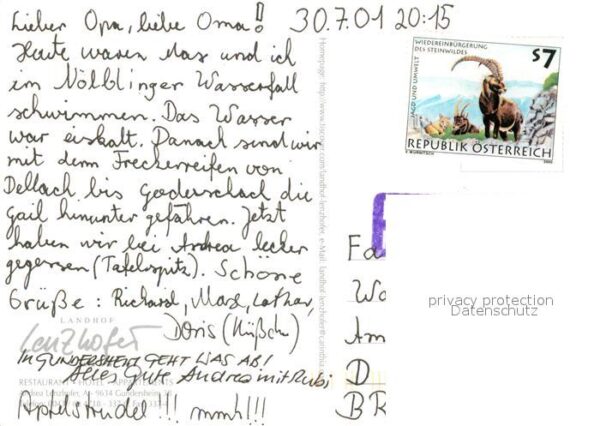 Lieber Opa, liebe Oma! 30.7.01 20:15
Heute waren Max und ich
im Nölblinger Wasserfall
schwimmen. Das Wasser
war eiskalt. Danach sind wir
mit dem Treckerreifen von
Dellach bis Goderschach die
Gail hinunter gefahren. Jetzt
haben wir bei Andrea lecker
gegessen (Tafelspitz). Schöne
Grüße: Richard, Max, Lothar,
Doris (Küßchen)
IN GUNDERSHEIM GEHT WAS AB!
Alles Gute Andrea mit Rubi
Apfelstrudel!!! mmh!!!
LANDHOF
Lenzhofer
RESTAURANT · HOTEL · APPARTEMENTS
Andrea Lenzhofer, A - 9634 Gundersheim
WIEDEREINBÜRGERUNG
DES STEINWILDES
$7
JAGD UND UMWELT
REPUBLIK ÖSTERREICH
2000
Fa
Wo
Am
D
BR
privacy protection
Datenschutz